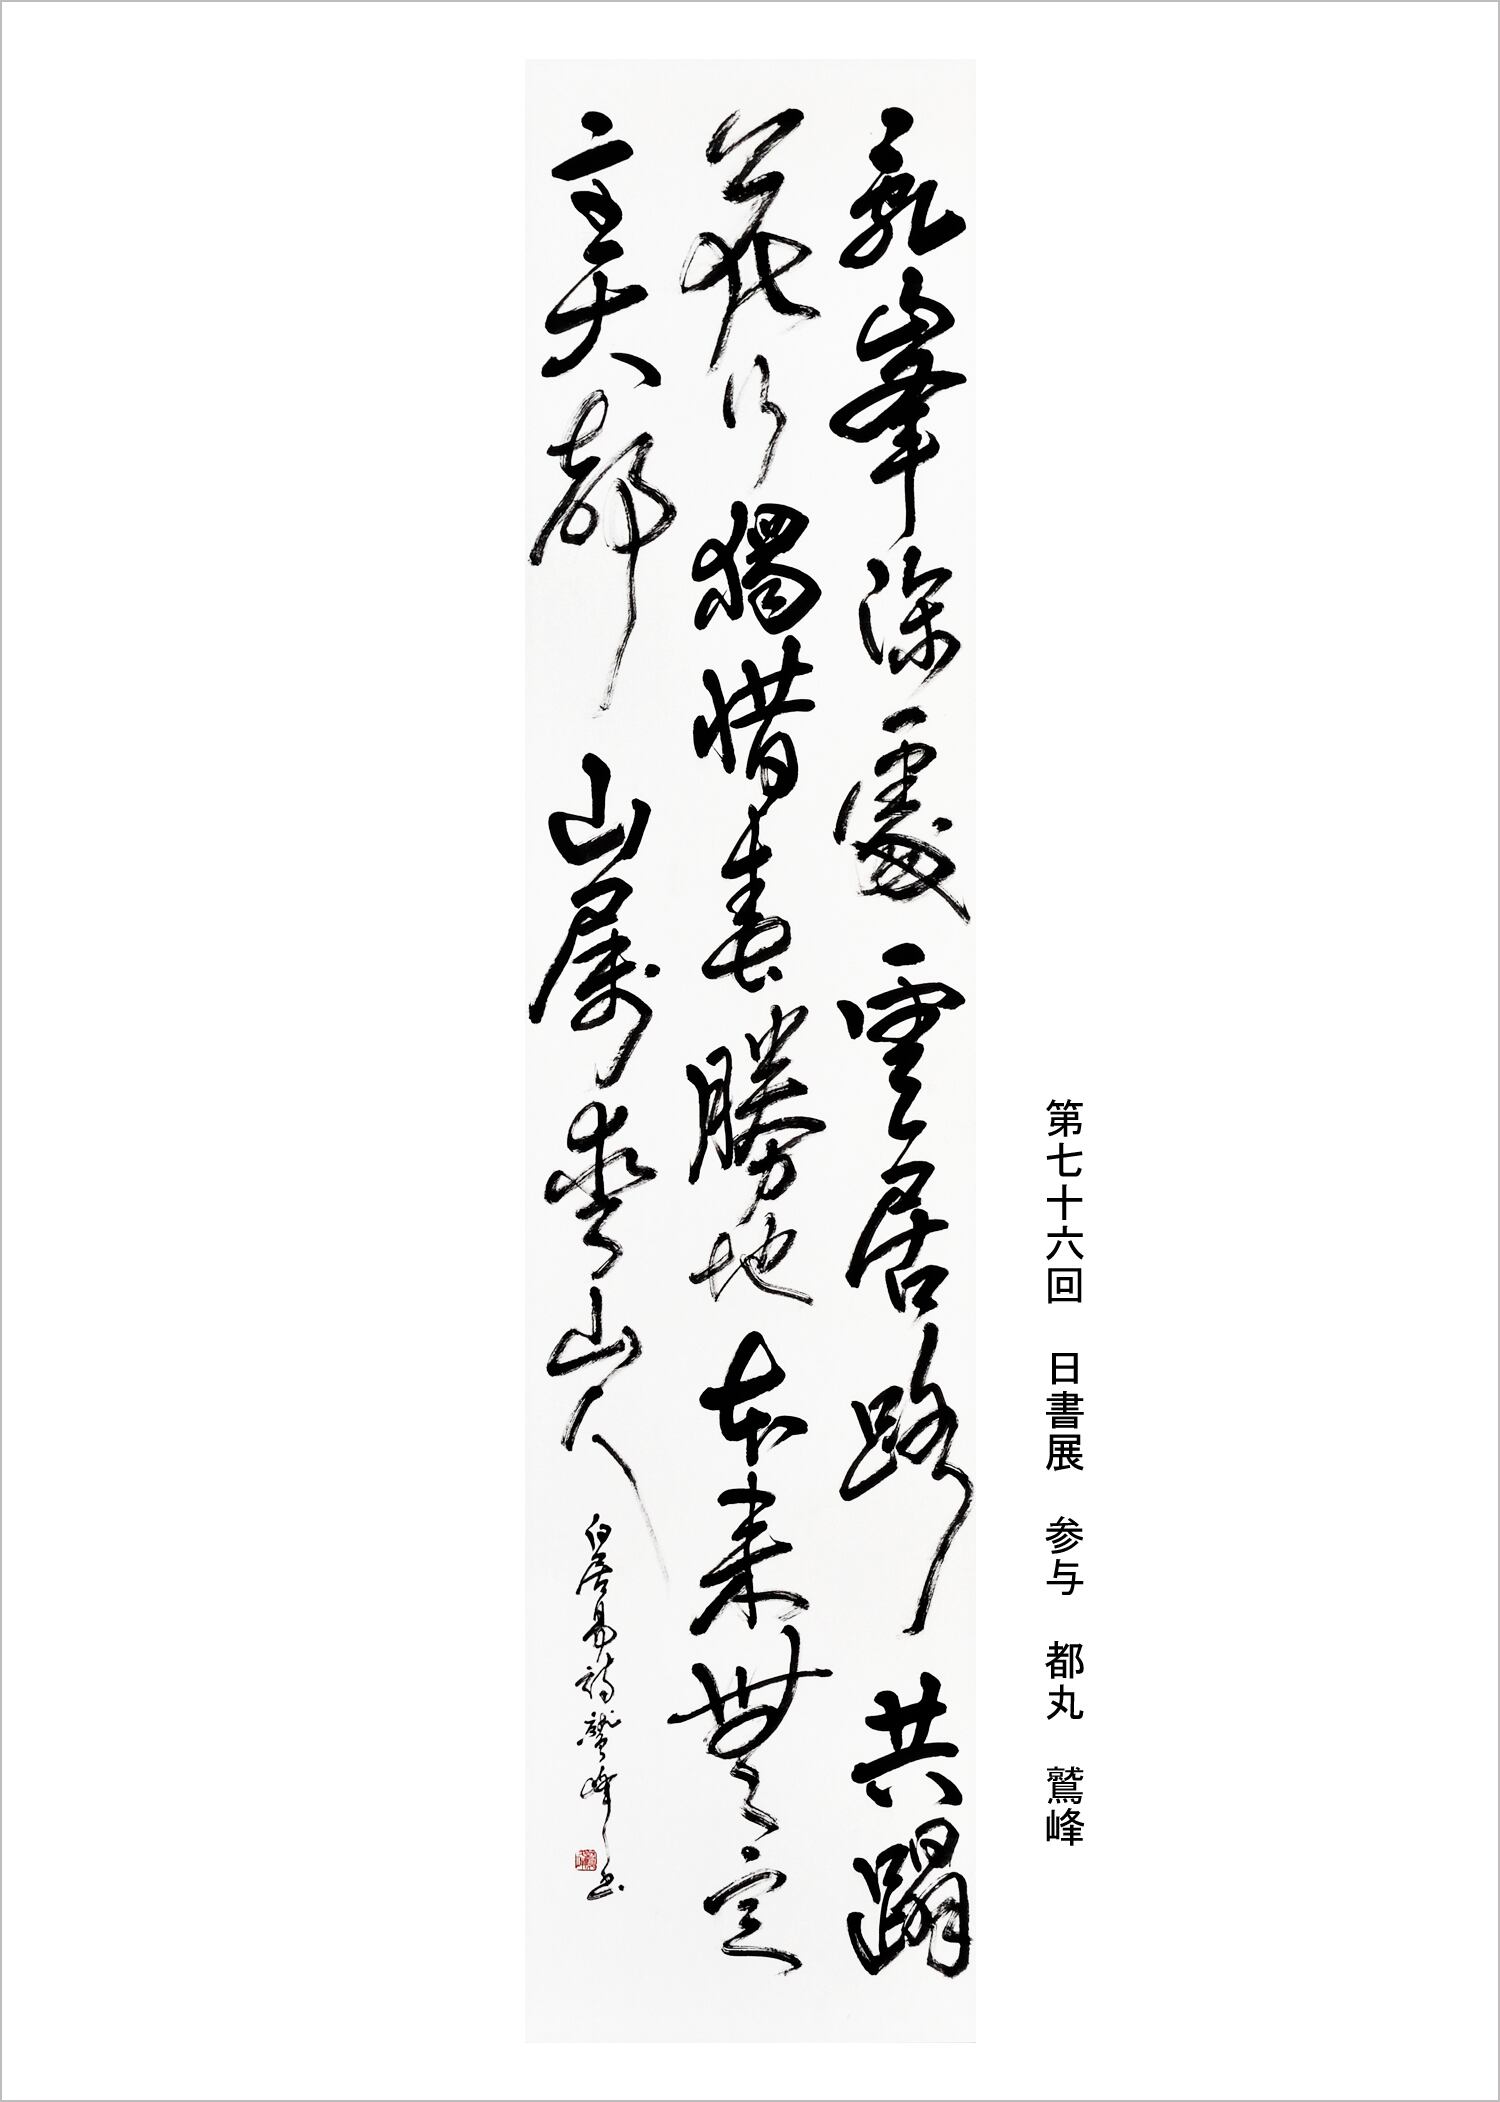 第七十六回 日書展 参与 都丸 鷲峰
乱峯深處雲居路共蹋
花行獨惜春勝地本来無定
主大都山属愛山人
白居易詩鷲峰書